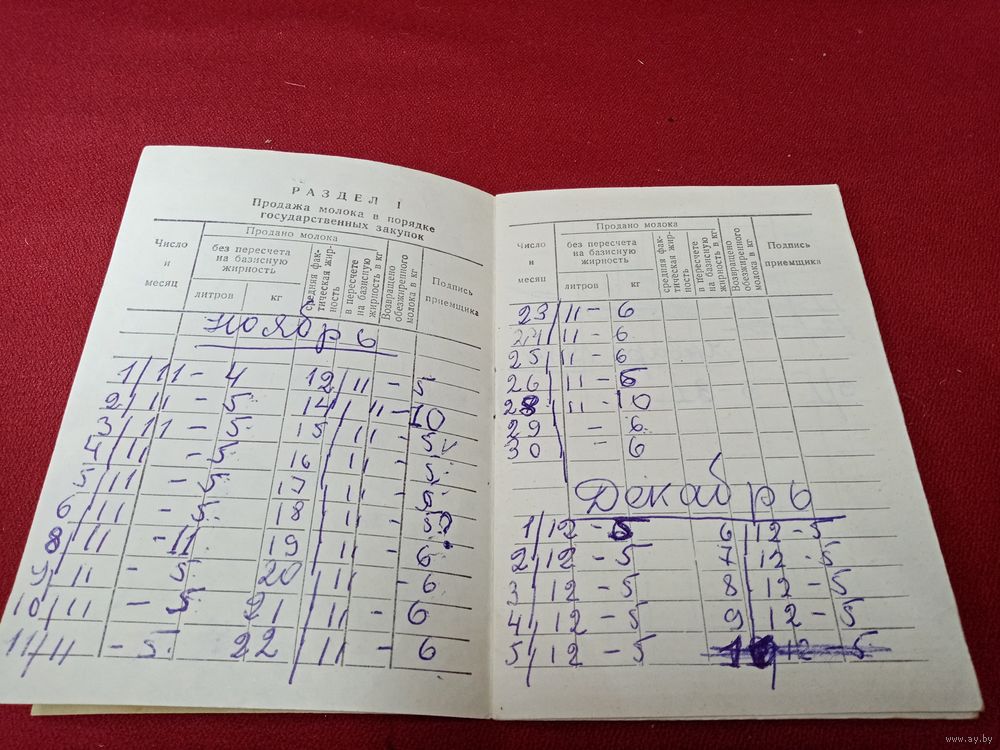 РАЗДЕЛ I
Продажа молока в порядке
государственных закупок
Число и месяц
Продано молока
без пересчета на базисную жирность
литров
кг
средняя фактическая жирность
в пересчете на базисную жирность в кг
Возвращено обезжиренного молока в кг
Подпись приемщика
Ноябрь
1/11 - 4 12/11 - 5
2/11 - 5 14/11 - 10
3/11 - 5 15/11 - 5
4/11 - 5 16/11 - 5
5/11 - 5 17/11 - 5
6/11 - 5 18/11 - 5
8/11 - 11 19/11 - 6
9/11 - 5 20/11 - 6
10/11 - 5 21/11 - 6
11/11 - 5 22/11 - 6
Число и месяц
Продано молока
без пересчета на базисную жирность
литров
кг
средняя фактическая жирность
в пересчете на базисную жирность в кг
Возвращено обезжиренного молока в кг
Подпись приемщика
23/11 - 6
24/11 - 6
25/11 - 6
26/11 - 6
28/11 - 10
29 - 6
30 - 6
Декабрь
1/12 - 5 6/12 - 5
2/12 - 5 7/12 - 5
3/12 - 5 8/12 - 5
4/12 - 5 9/12 - 5
5/12 - 5 10/12 - 5
www.ay.by